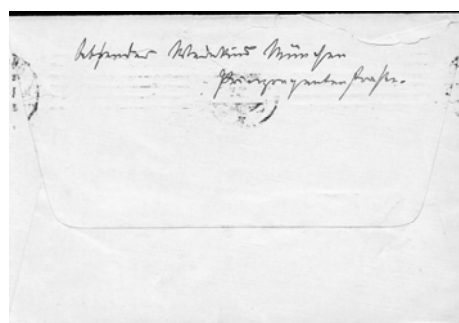 Absender Wedekind München
Prinzregentenstraße.